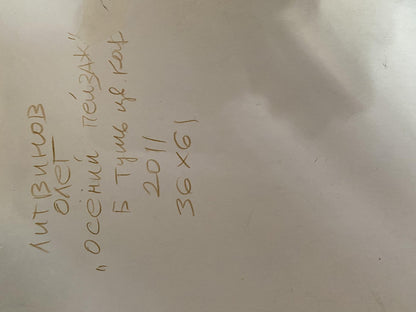 ЛИТВИНОВ
ОЛЕГ
„ОСЕНИЙ ПЕЙЗАЖ"
Б Тушь цв. кар.
2011
36×61